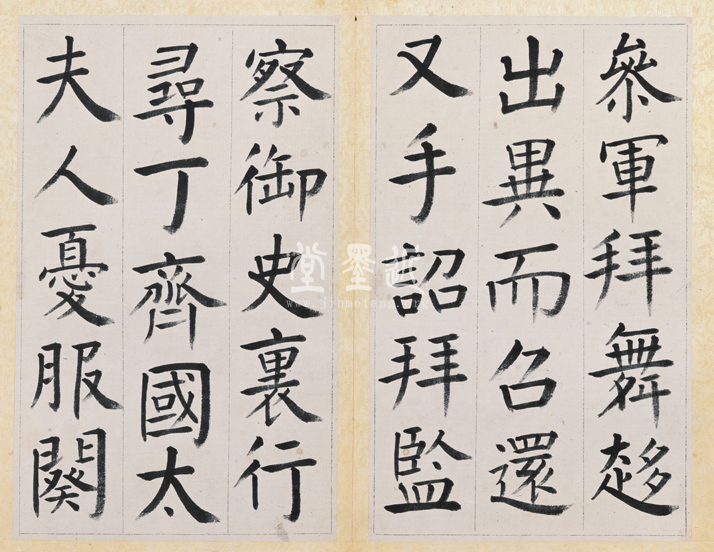 參軍拜舞趍
出異而召還
又手詔拜監
察御史裏行
尋丁齊國太
夫人憂服闋